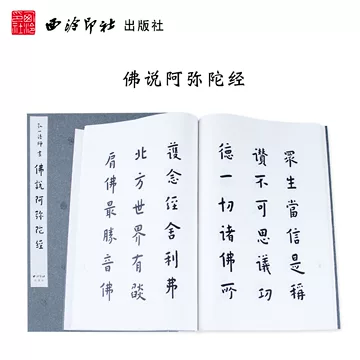 西泠印社出版社
佛说阿弥陀经
弘一法师书
佛说阿弥陀经
眾生當信是稱
讚不可思議功
德一切諸佛所
護念經舍利弗
北方世界有燄
肩佛最勝音佛